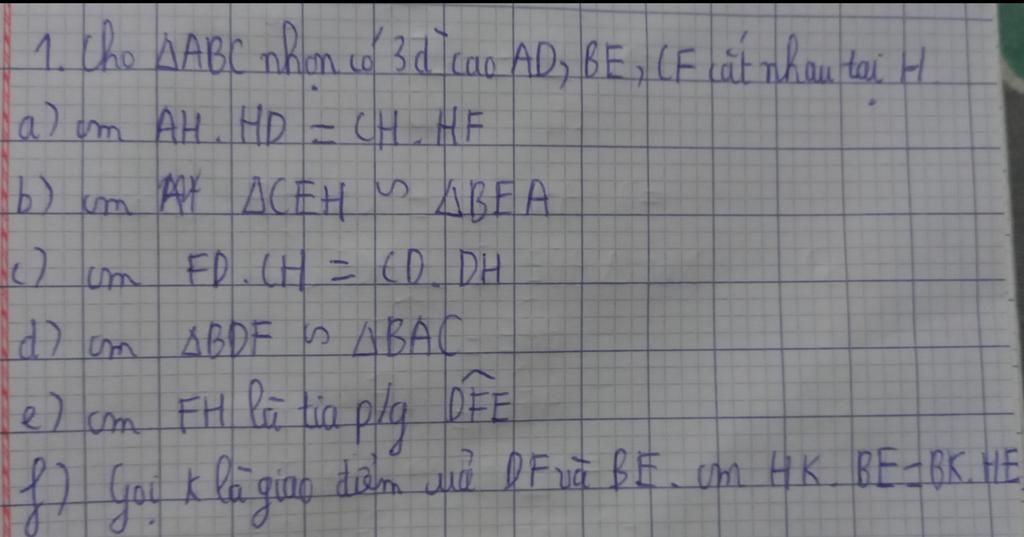 1. Cho ΔABC nhọn có 3 đ̀ cao AD, BE, CF cắt nhau tại H
a) cm AH. HD = CH. HF
b) cm ΔCEH ∽ ΔBEA
c) cm FD. CH = CD. DH
d) cm ΔBDF ∽ ΔBAC
e) cm FH là tia p/g D̂FE
f) Gọi K là giao điểm của DF và BE. cm HK. BE = BK. HE